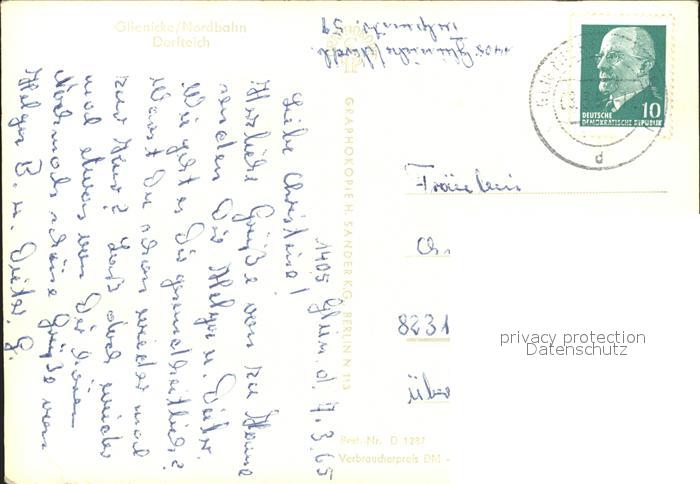 Glienicke/Nordbahn
Dorfteich
1405 Glienicke/Nordb.
1405 Glien. d. 7.3.65
Liebe Christine!
Herzliche Grüße von zu Hause
senden Dir Helga u. Dieter.
Wie geht es Dir gesundheitlich?
Warst Du schon wieder mal
zur Kur? Laß doch wieder
mal etwas von Dir hören
Nochmals schöne Grüße von
Helga B. u. Dieter G.
GRAPHOKOPIE H. SANDER KG, BERLIN N 113
10
DEUTSCHE
DEMOKRATISCHE REPUBLIK
d
Fräulein
8231
über
Best.-Nr. D 1287
Verbraucherpreis DM -
privacy protection
Datenschutz